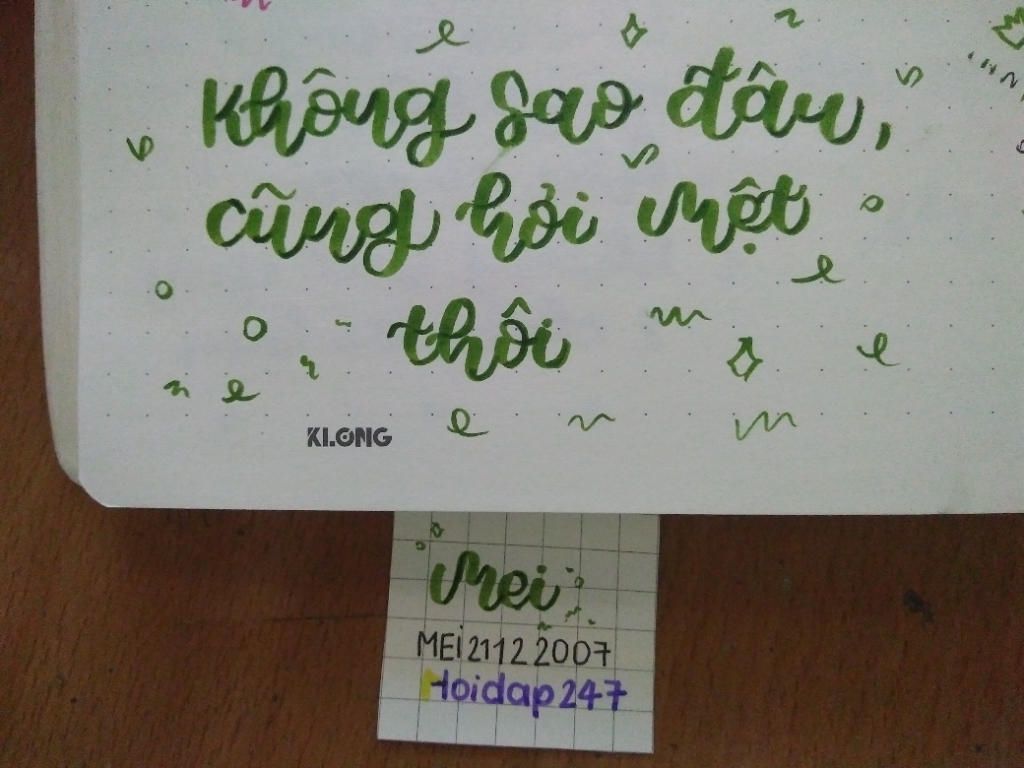 Không sao đâu,
cũng hỏi một
thôi
KLONG
Mei
MEI 2112 2007
Hoidap247